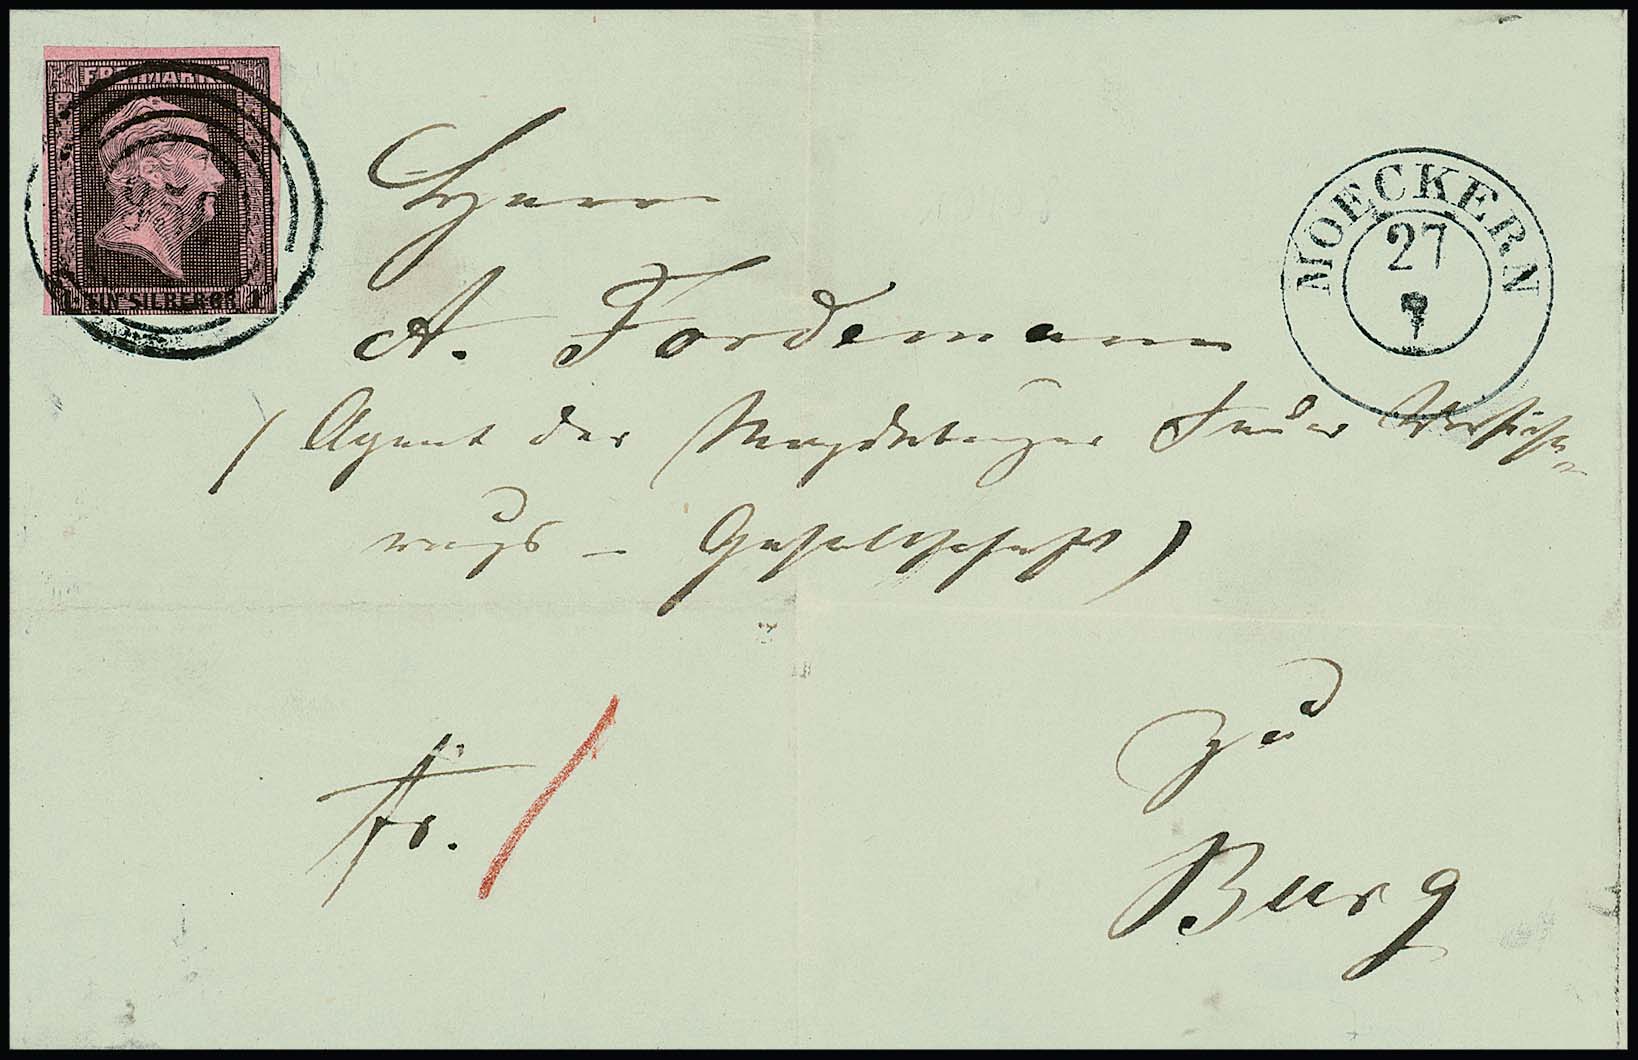 FREIMARKE
1 EIN SILBERGR. 1
MOECKERN
27
7
Herrn
A. Fordemann
(Agent der Magdeburger Feuer Versiche-
rungs - Gesellschaft)
fr. /
zu
Burg